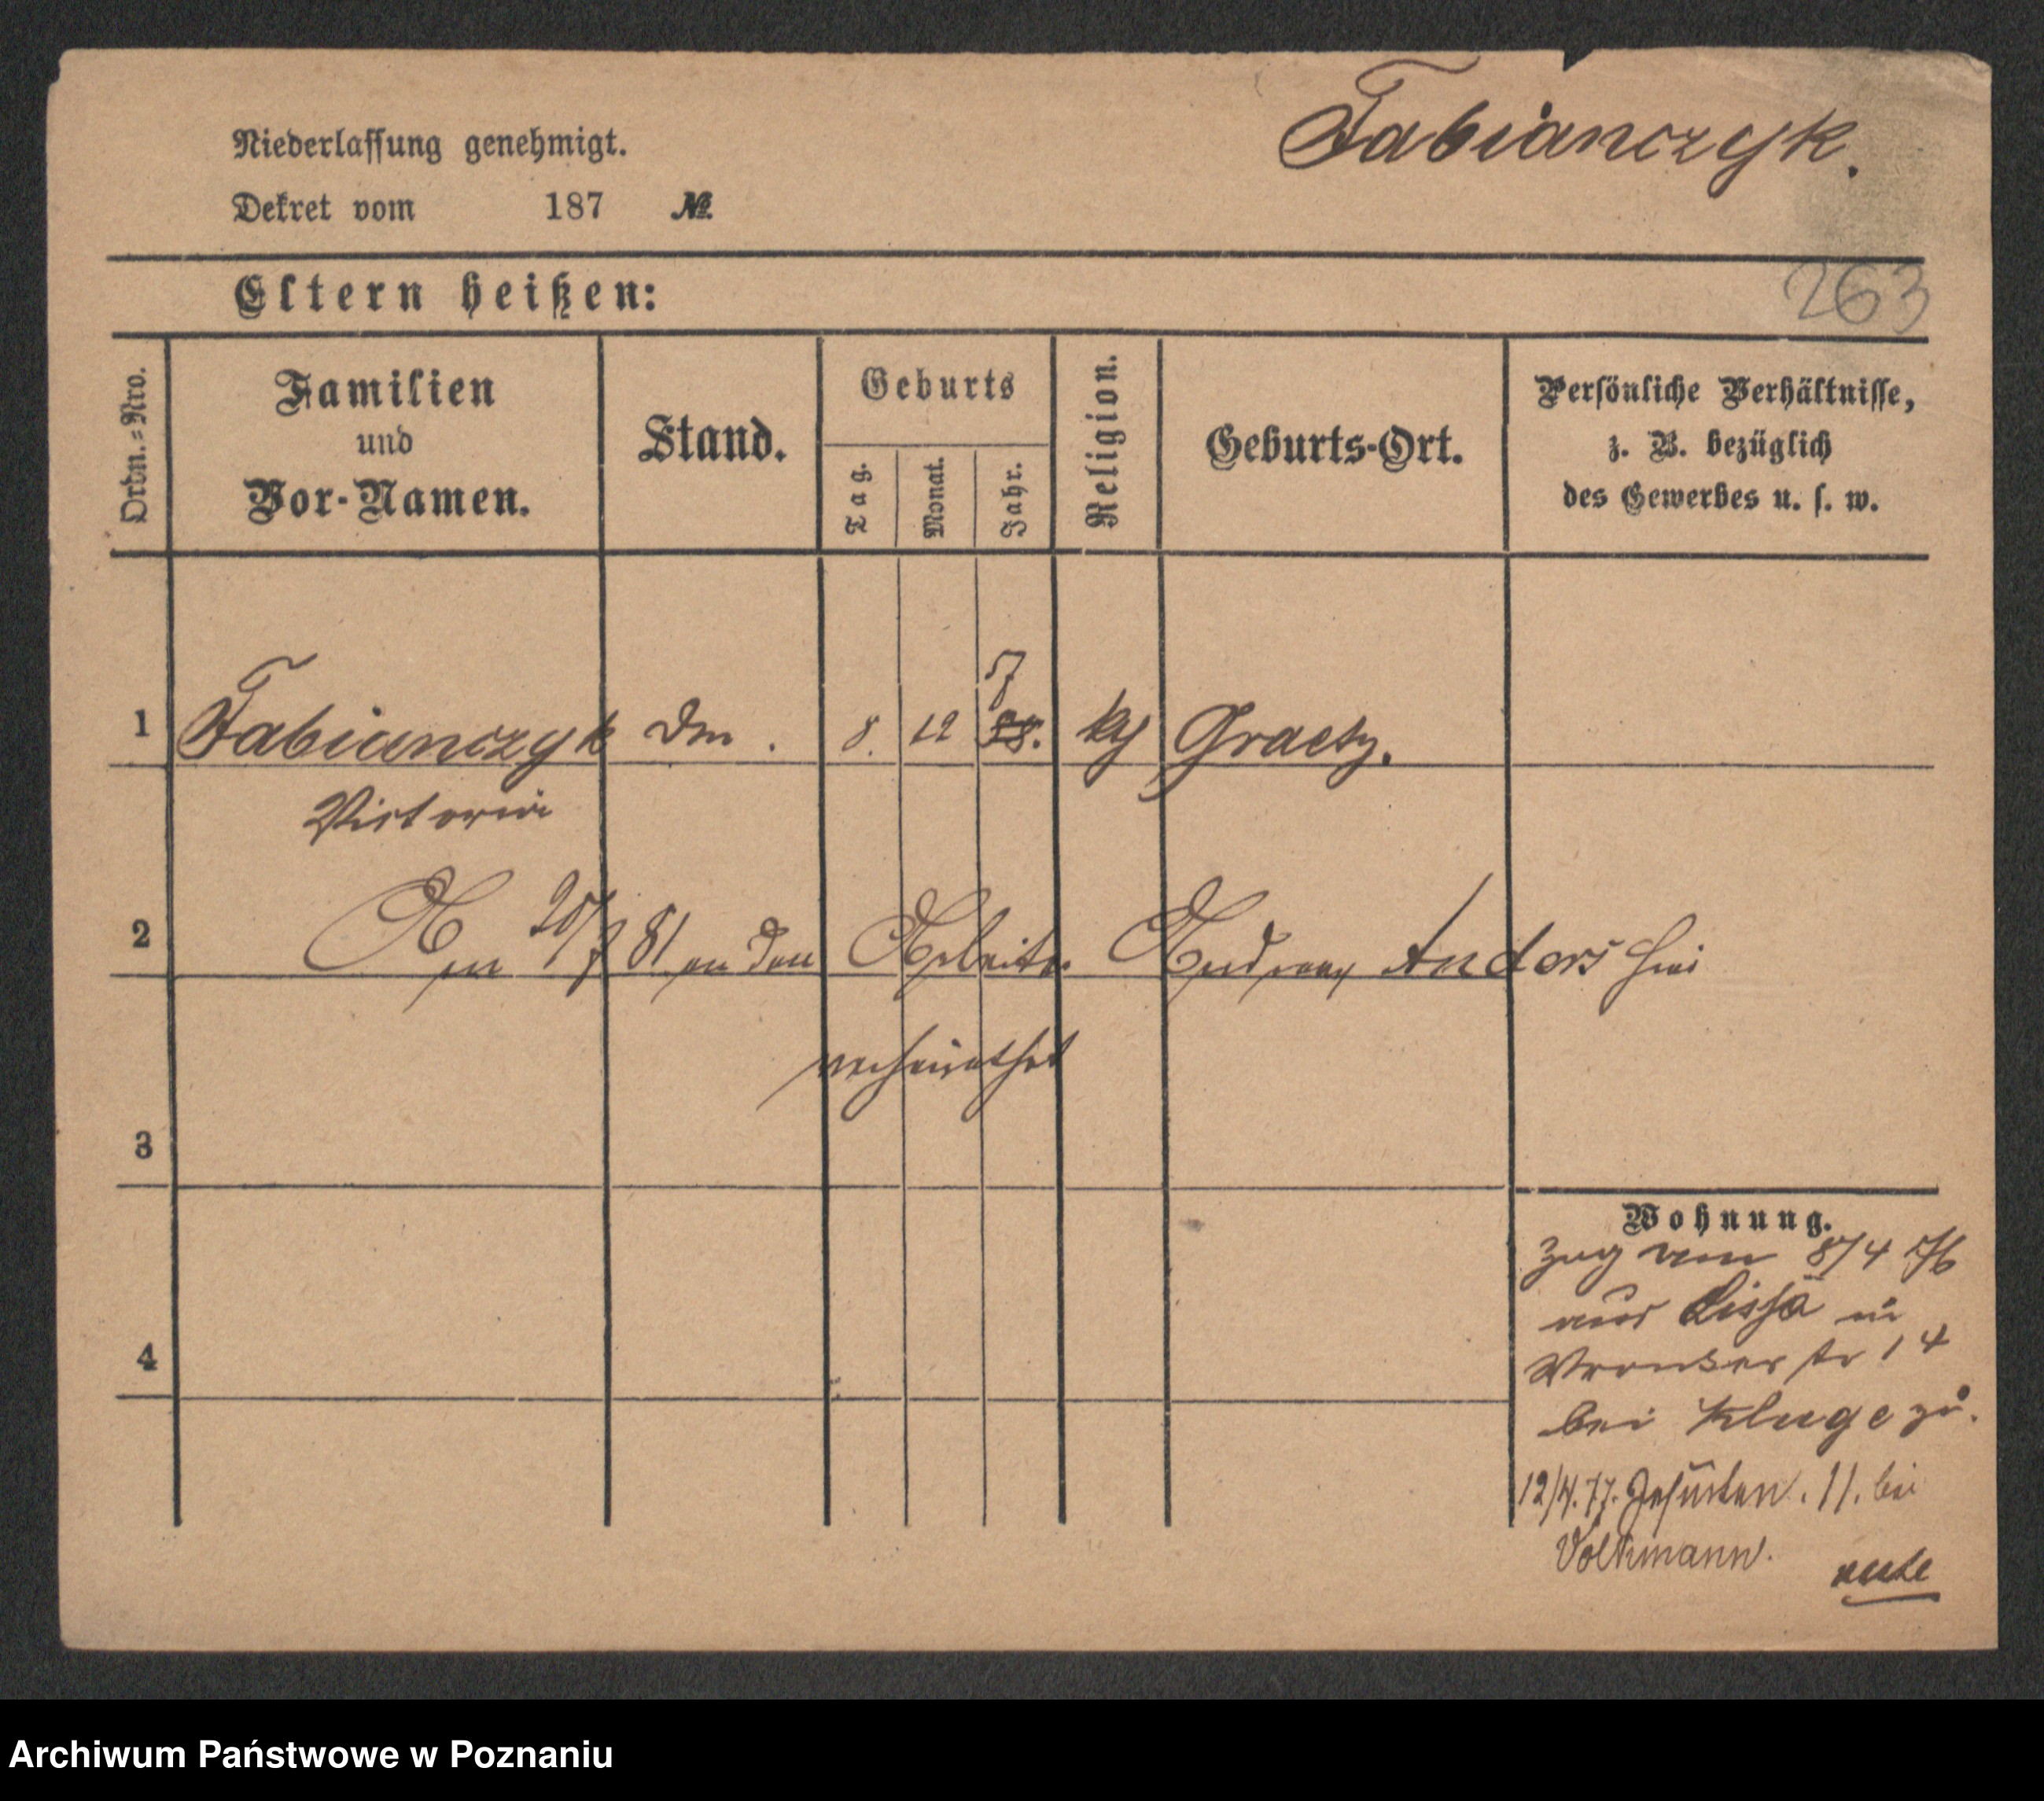 Fabianczyk.
Niederlassung genehmigt.
Dekret vom 187 №
Eltern heißen:
263
Ordn.-Nro.
Familien
und
Vor-Namen.
Stand.
Geburts
Tag.
Monat.
Jahr.
Religion.
Geburts-Ort.
Persönliche Verhältnisse,
z. B. bezüglich
des Gewerbes u. s. w.
57
1 Fabianczyk 8. 12 58. Graetz.
Victoria
2 Am 20/7 81 an den Arbeiter Andreas Anders hier
verheirathet
3
Wohnung.
Zug vom 8/4 76
aus Lissa in
Wronkerstr 14
bei Kluge zu.
4
12/4.77. Jesuiten. 11. bei
Volkmann.